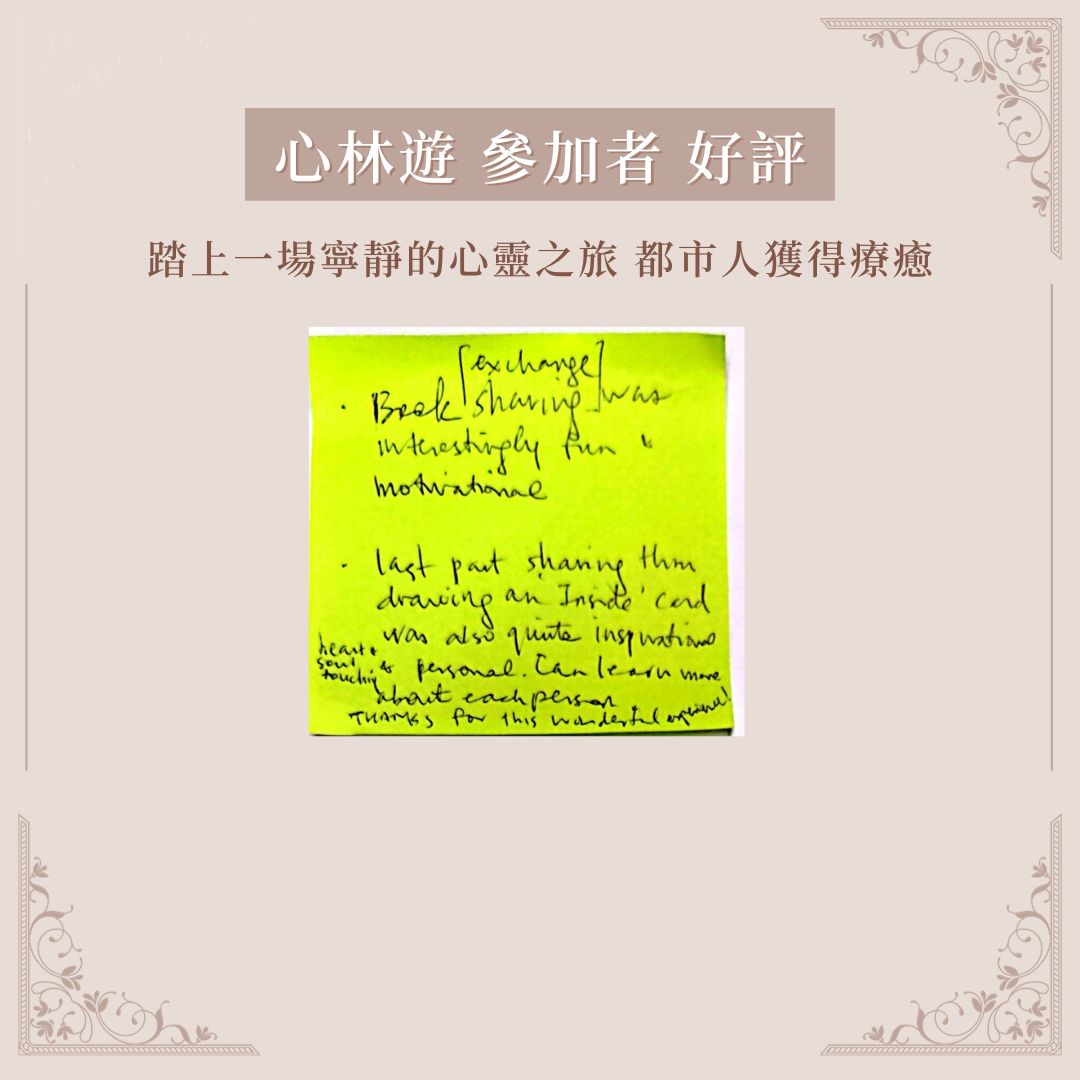 心林遊 參加者 好評
踏上一場寧靜的心靈之旅 都市人獲得療癒
[exchange]
· Book sharing was
interestingly fun &
motivational
· last part sharing thru
drawing an 'Inside' card
was also quite inspirational
heart &
soul
touching
& personal. Can learn more
about each person
THANKS for this wonderful experience!